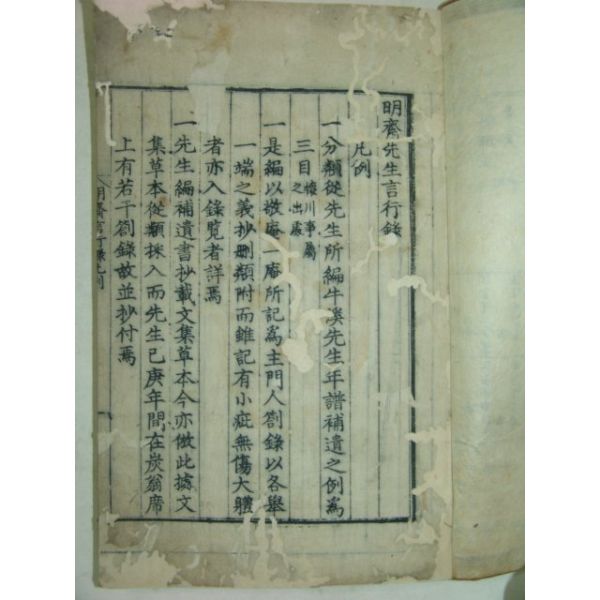 明齋先生言行錄
凡例
一分類從先生所編牛溪先生年譜補遺之例爲
三目懷川事屬之出處
一是編以敬庵一庵所記爲主門人劄錄以各擧
一端之義抄刪類附而雖記有小疵無傷大體
者亦入錄覽者詳焉
一先生編補遺書抄載文集草本今亦倣此據文
集草本從類採入而先生己庚年間在炭翁席
上有若干劄錄故並抄付焉
明齋言行錄凡例